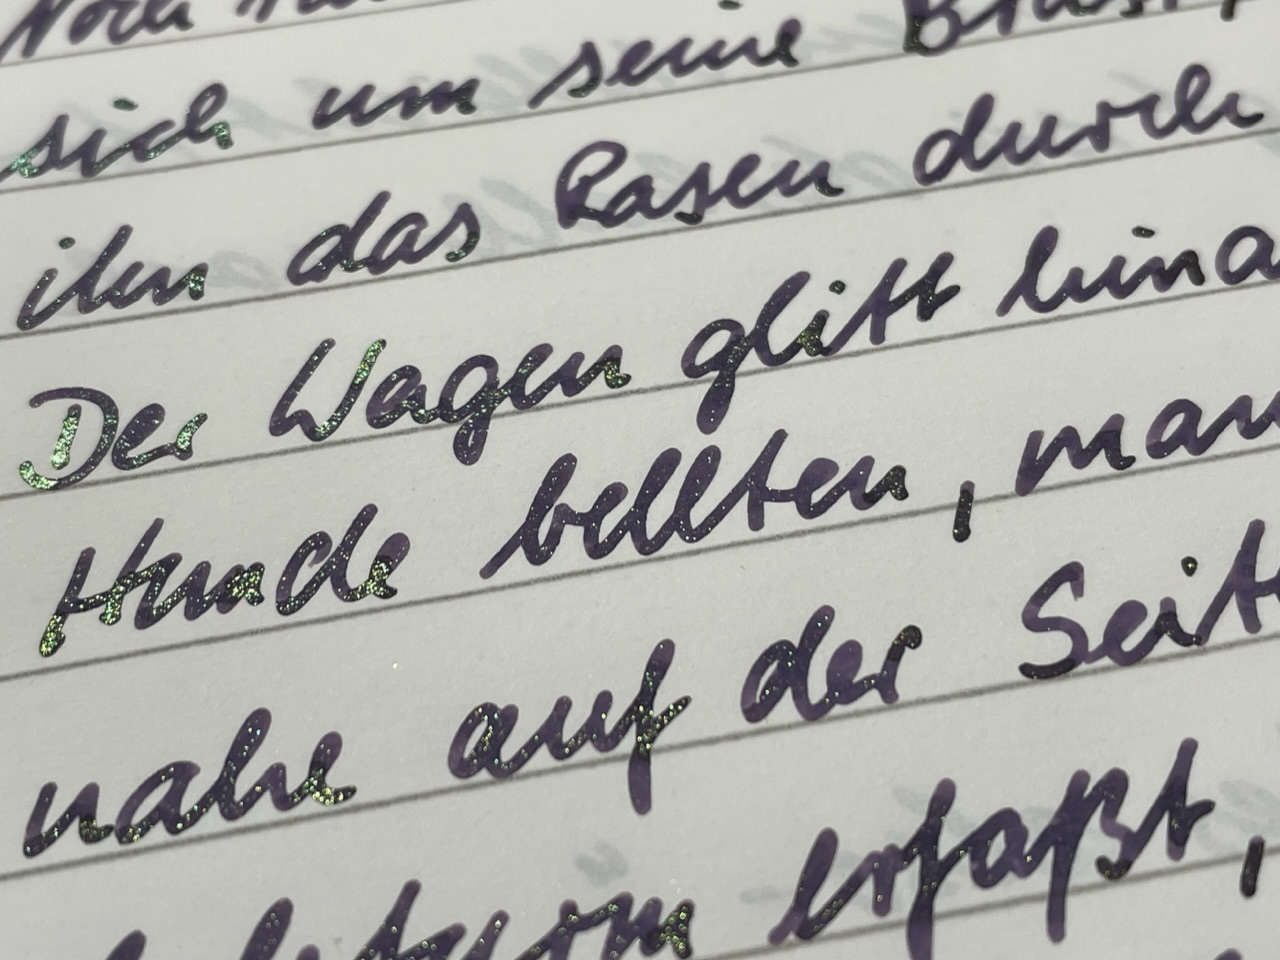 Noch
sich um seine Brust,
ihn das Rasen durch
Der Wagen glitt hina
Hunde bellten, man
nahe auf der Seite
erfaßt,